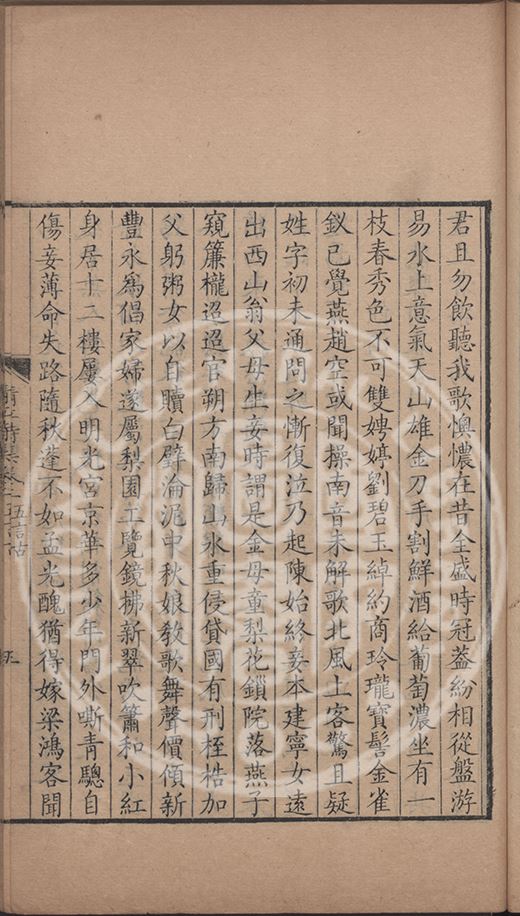 君且勿飲聽我歌懊憹在昔全盛時冠葢紛相從盤游
易水上意氣天山雄金刀手割鮮酒給葡萄濃坐有一
枝春秀色不可雙娉婷劉碧玉綽約商玲瓏寶髻金雀
釵已覺燕趙空或聞操南音未解歌北風上客驚且疑
姓字初未通問之慚復泣乃起陳始終妾本建寧女遠
出西山翁父母生妾時謂是金母童棃花鎖院落燕子
窺簾櫳迢迢官朔方南歸山水重侵貸國有刑桎梏加
父躬粥女以自贖白璧淪泥中秋娘敎歌舞聲價傾新
豐永爲倡家婦遂屬梨園工覽鏡拂新翠吹簫和小紅
身居十二樓屢入明光宮京華多少年門外嘶青驄自
傷妾薄命失路隨秋蓬不如孟光醜猶得嫁梁鴻客聞
五言古